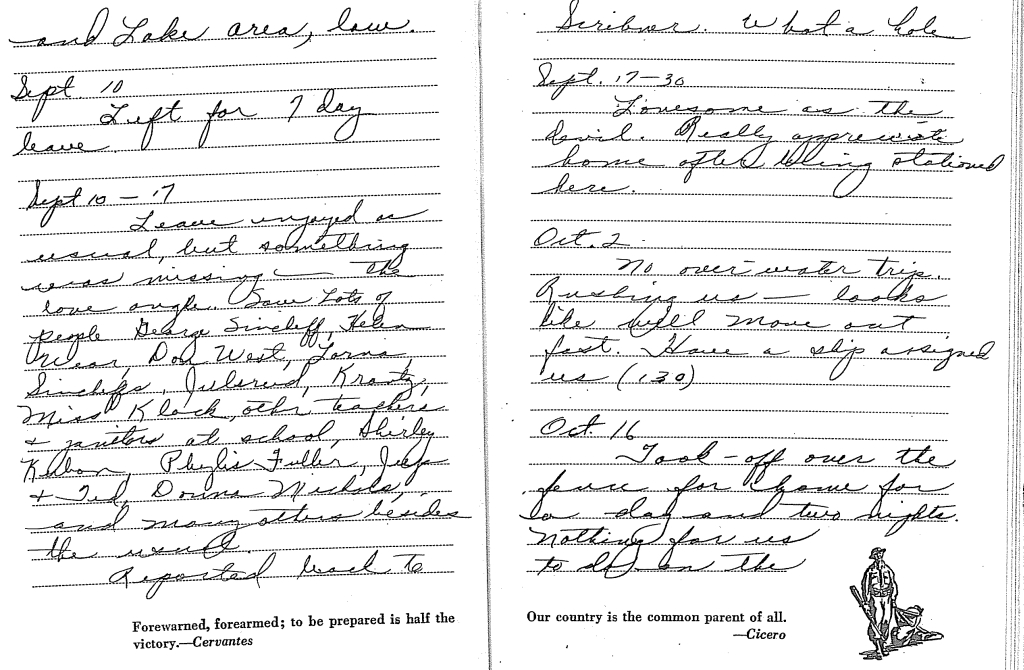 and Lake area, low.
Sept. 10
Left for 7 day
leave.
Sept 10 – 17
Leave enjoyed as
usual, but something
was missing — the
love angle. Saw Lots of
people George Sincliff, Helen
Wear, Don West, Lorna
Sincliff, Julsrud, Krantz,
Miss Klock, othr teachers
& janitors at school, Shirley
Phylis Fuller, Jeep
& Ted, Donna Nichols,
and many others besides
the usual.
Reported back to
Forewarned, forearmed; to be prepared is half the
victory.—Cervantes
Scribner. What a hole
Sept. 17–30
Lonesome as the
devil. Really appreciate
home after being stationed
here.
Oct. 2
No over water trip.
Rushing us — looks
like we'll move out
fast. Have a ship assigned
us (130)
Oct. 16
Took-off over the
fence for home for
a day and two nights.
Nothing for us
to do on the
Our country is the common parent of all.
—Cicero